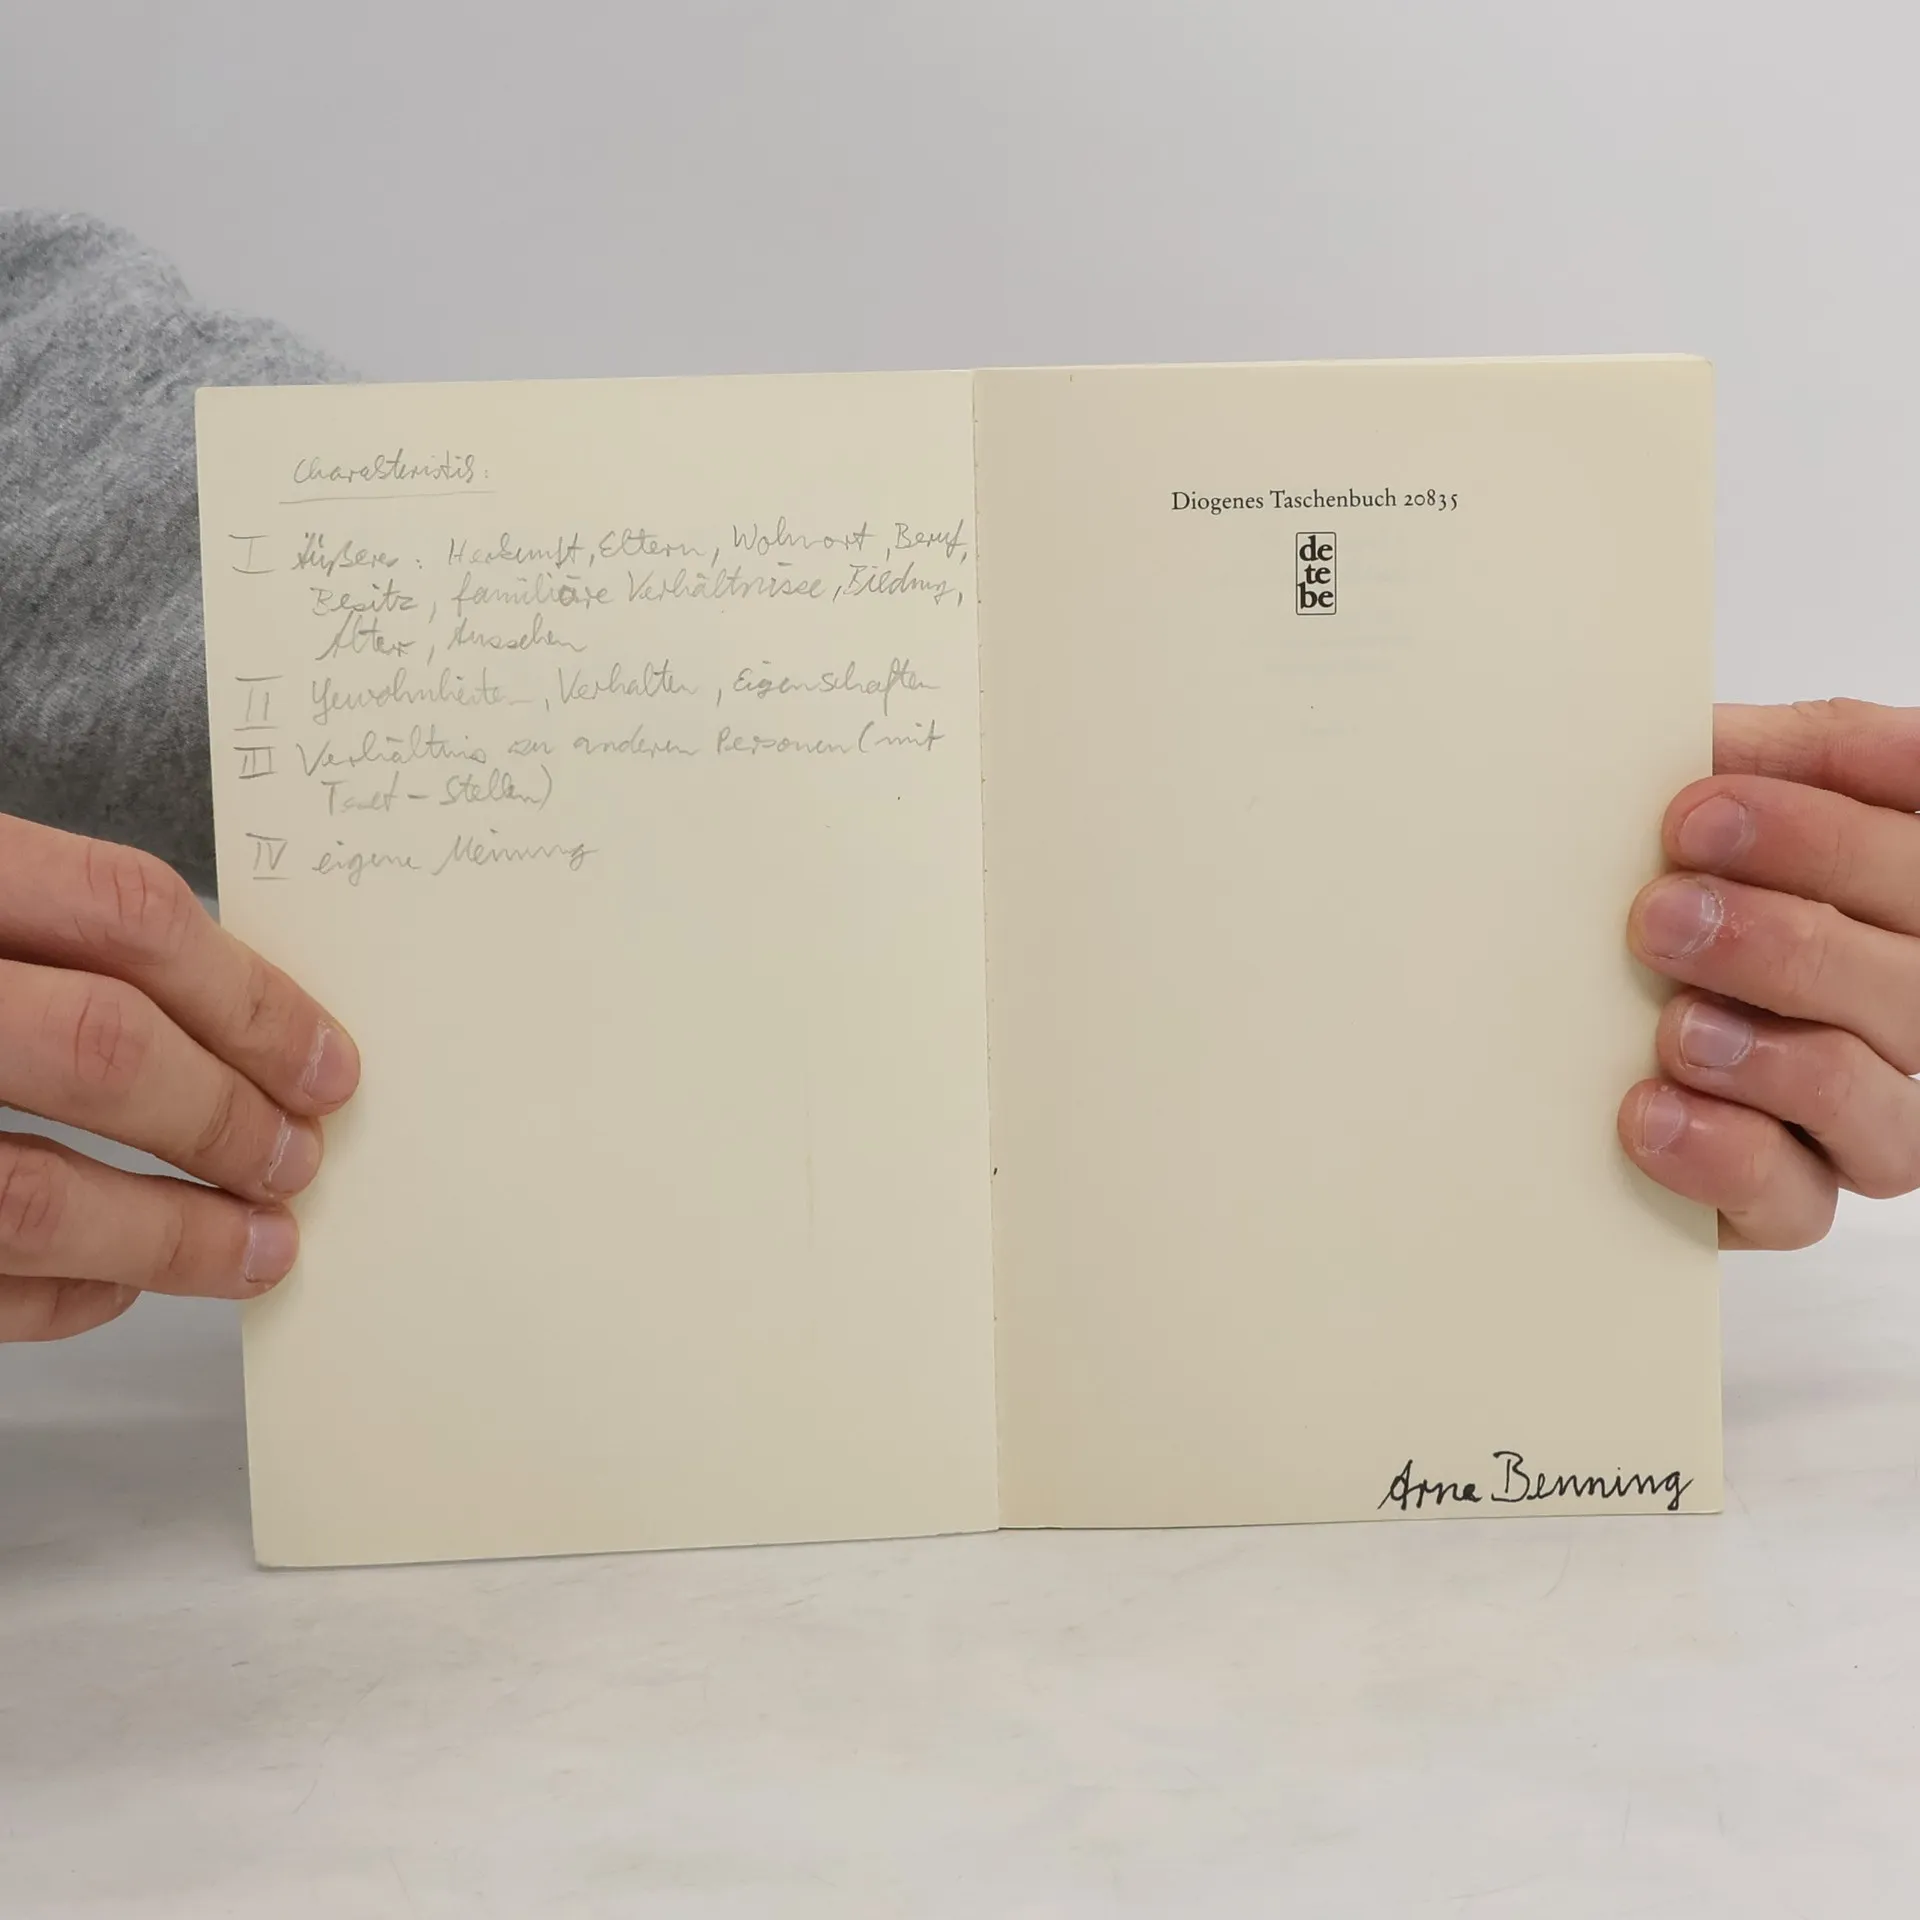 Charakteristik:
I Äußeres: Herkunft, Eltern, Wohnort, Beruf,
Besitz, familiäre Verhältnisse, Bildung,
Alter, Aussehen
II Gewohnheiten, Verhalten, Eigenschaften
III Verhältnis zu anderen Personen (mit
Text-Stellen)
IV eigene Meinung
Diogenes Taschenbuch 20835
de
te
be
Arne Benning